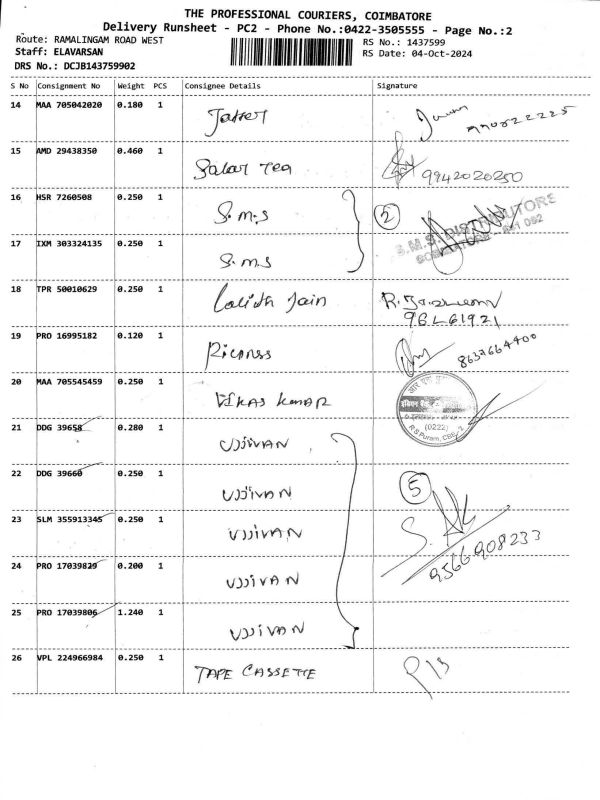 THE PROFESSIONAL COURIERS, COIMBATORE
Delivery Runsheet - PC2 - Phone No.:0422-3505555 - Page No.:2
Route: RAMALINGAM ROAD WEST
RS No.: 1437599
Staff: ELAVARSAN
RS Date: 04-Oct-2024
DRS No.: DCJB143759902
S No Consignment No Weight PCS Consignee Details Signature
14 MAA 705042020 0.180 1
15 AMD 29438350 0.460 1 Salar Tea
9942020250
16 HSR 7260508 0.250 1 S.M.S
2
S.M.S. DISTRIBUTORS
17 IXM 303324135 0.250 1 S.M.S
18 TPR 50010629 0.250 1 Lalith Jain
19 PRO 16995182 0.120 1
8637664400
20 MAA 705545459 0.250 1 VIKAS KUMAR
(0222)
R S Puram, CBE-2
21 DDG 39658 0.280 1 UJJIVAN
22 DDG 39660 0.250 1 UJJIVAN
5
23 SLM 355913345 0.250 1 UJJIVAN
9566908233
24 PRO 17039829 0.200 1 UJJIVAN
25 PRO 17039806 1.240 1 UJJIVAN
26 VPL 224966984 0.250 1 TAPE CASSETTE